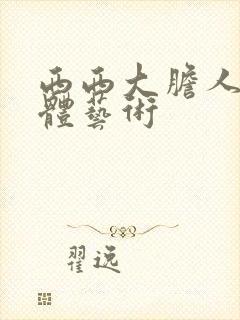 西西大膽人
體藝術
翟逸